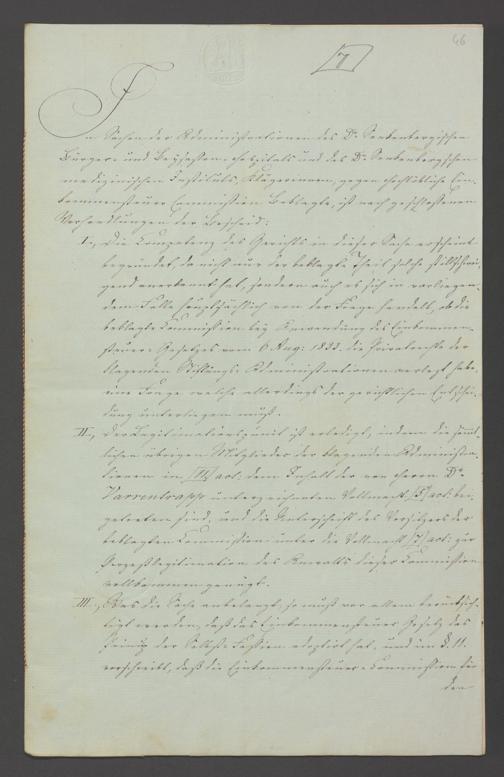 46
7
In Sachen der Administrationen des Dr. Senkenbergischen
Bürger- und Beysassen-Hospitals und des Dr. Senkenbergischen
medizinischen Instituts, Klägerinnen, gegen löbliche Ein-
kommensteuer-Commission Beklagte, ist nach geschlossenen
Verhandlungen der Bescheid:
I., Die Competenz des Gerichts in dieser Sache erscheint
begründet, da nicht nur der beklagte Theil solche stillschwei-
gend anerkannt hat, sondern auch es sich in vorliegen-
dem Falle hauptsächlich von der Frage handelt, ob die
beklagte Commission bey Anwendung des Einkommen-
steuer-Gesetzes vom 6 Aug: 1833. die Privatrechte der
klagenden Stiftungs-Administrationen verletzt habe,
eine Frage welche allerdings der gerichtlichen Entschei-
dung unterliegen muß.
II., Der Legitimationspunct ist erledigt, indem die sämt-
lichen übrigen Mitglieder der klagenden Administra-
tionen in [III] act. dem Inhalt der von Herrn Dr.
Varrentrapp unterzeichneten Vollmacht act: bei-
getreten sind, und die Unterschrift des Vorsitzers der
beklagten Commission unter die Vollmacht act: zur
Prozeßlegitimation des Anwalts dieser Commission
vollkommen genügt.
III., Was die Sache anbelangt, so muß vor allem berücksich-
tigt werden, daß das Einkommensteuer Gesetz das
Prinzip der Selbst-Fassion adoptirt hat, und im §. 11.
vorschreibt, daß die Einkommensteuer-Commission bei
den